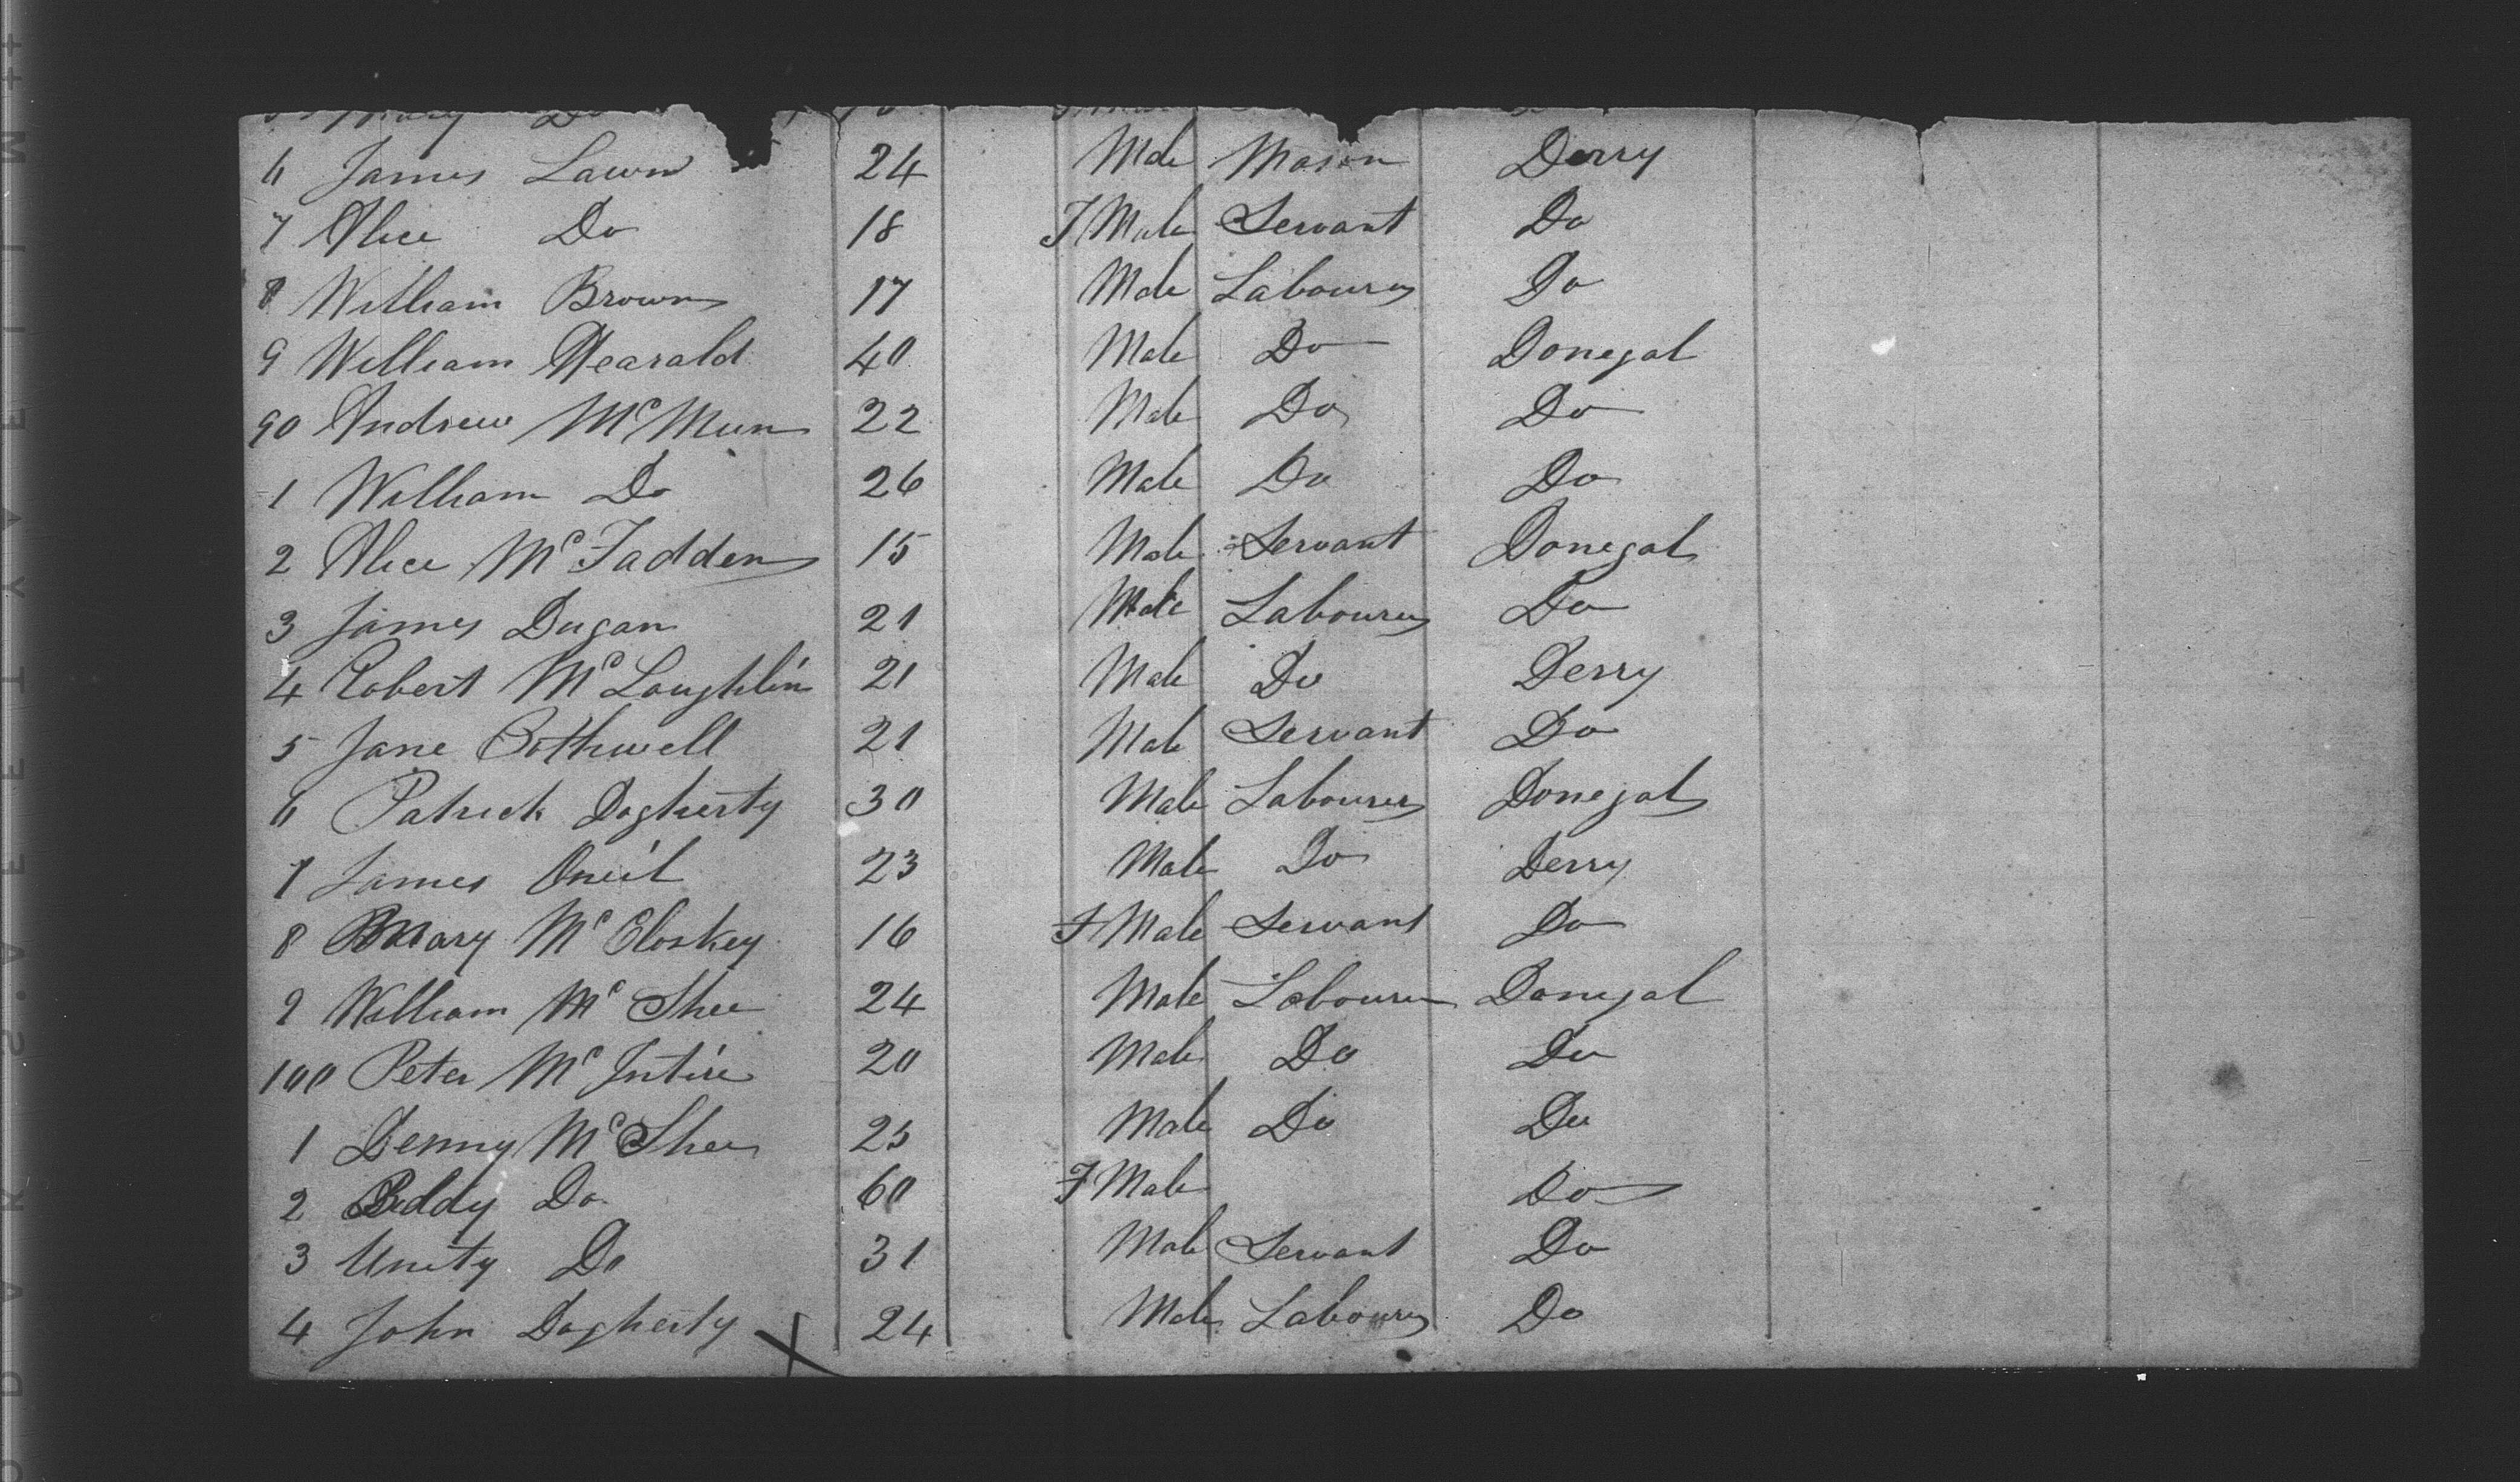 Mary Do
6 James Lawn 24 Male Mason Derry
7 Alice Do 18 F Male Servant Do
8 William Brown 17 Male Labourer Do
9 William Hearald 40 Male Do Donegal
90 Andrew McMunn 22 Male Do Do
1 William Do 26 Male Do Do
2 Alice McFadden 15 Male Servant Donegal
3 James Dugan 21 Male Labourer Do
4 Robert McLoughlin 21 Male Do Derry
5 Jane Bothwell 21 Male Servant Do
6 Patrick Dogherty 30 Male Labourer Donegal
7 James Oneil 23 Male Do Derry
8 Mary McCloskey 16 F Male Servant Do
9 William McShee 24 Male Labourer Donegal
100 Peter McIntire 20 Male Do Do
1 Denny McShee 25 Male Do Do
2 Biddy Do 60 F Male Do
3 Unity Do 31 Male Servant Do
4 John Dogherty X 24 Male Labourer Do